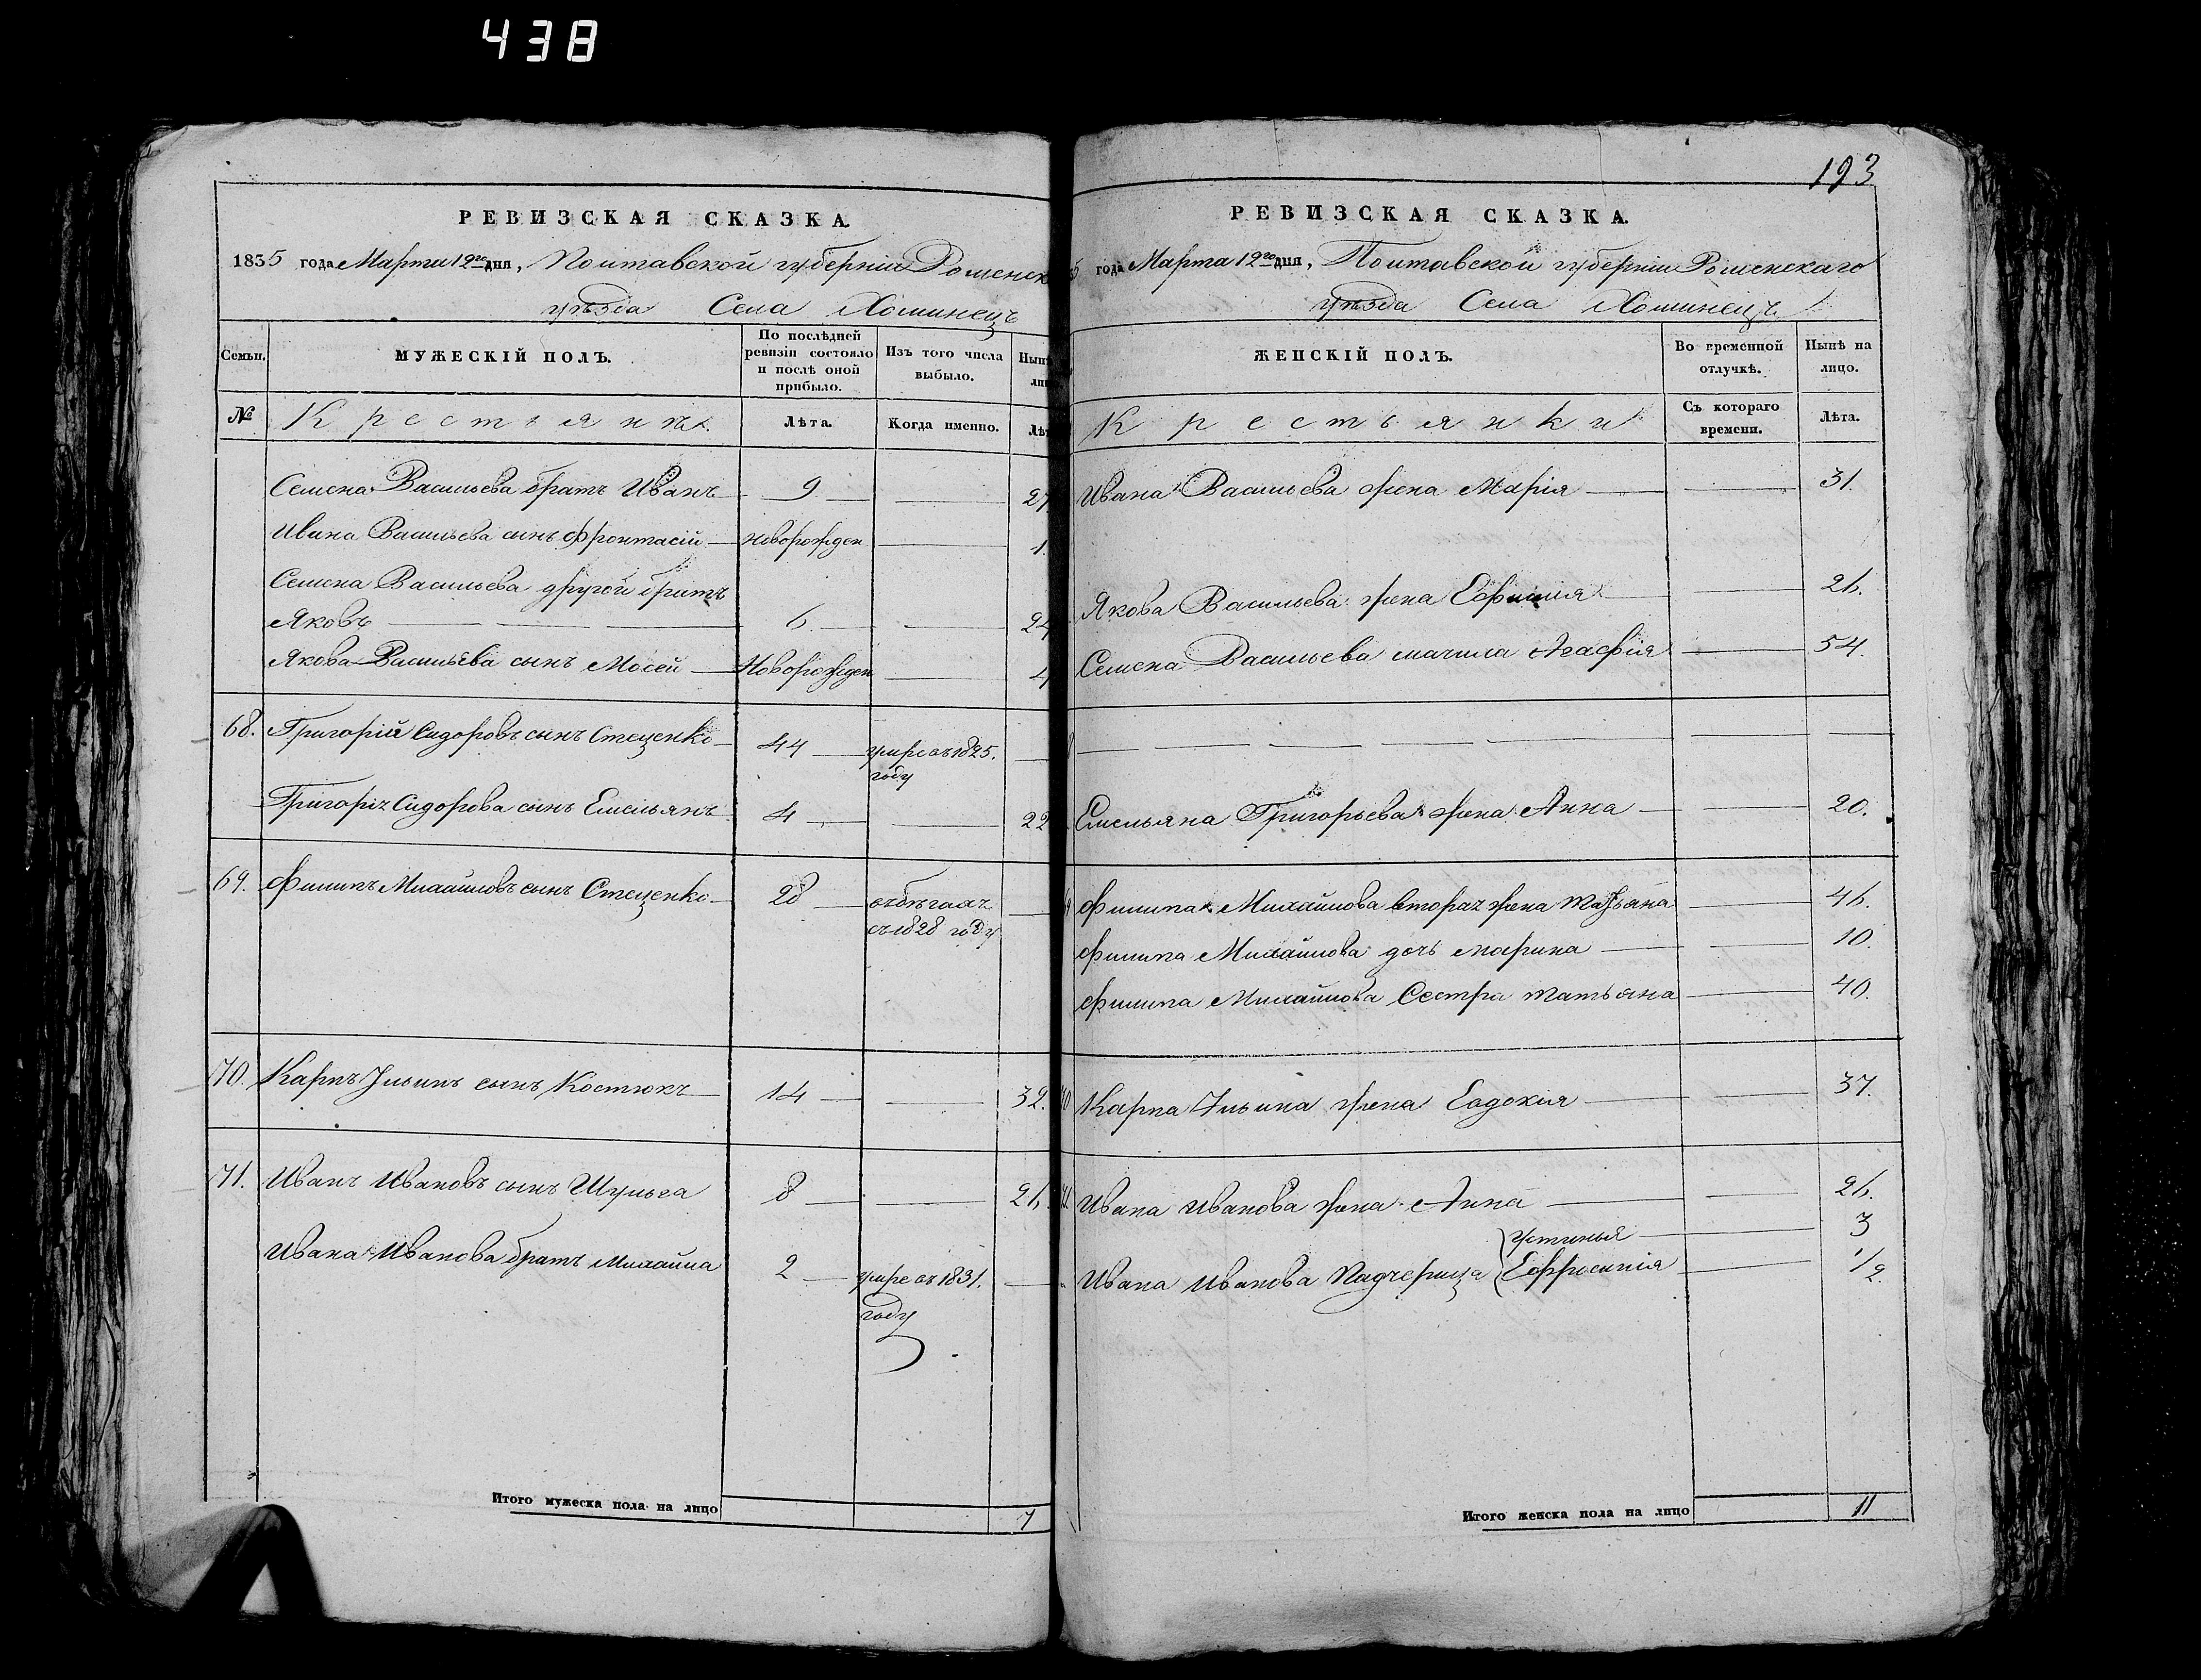 438
РЕВИЗСКАЯ СКАЗКА.
1835 года Марта 12го дня, Полтавской губерніи Роменск
уѣзда Села Хоминецъ
Семьи. МУЖЕСКІЙ ПОЛЪ. По послѣдней ревизіи состояло и послѣ оной прибыло. Изъ того числа выбыло. Нын
№ Крестьянъ. Лѣта. Когда именно. Лѣт
Семена Васильева братъ Иванъ 9 27
Ивана Васильева сынъ новорожден 1.
Семена Васильева другой братъ
Яковъ 6. 24
Якова Васильева сынъ Мосей Новорожден 4
68. Григорій Сидоровъ сынъ Стеценко 44 умре въ 1825.
году
Григорія Сидорова сынъ Емельянъ 4 22
69. Филипъ Михайловъ сынъ Стеценко 28 въ бѣгахъ
съ 1828 году
70. Карпъ Ильинъ сынъ Костюкъ 14 32.
71. Иванъ Ивановъ сынъ Шульга 8 26.
Ивана Иванова братъ Михайла 2 умре въ 1831.
году
Итого мужеска пола на лицо 7
193
РЕВИЗСКАЯ СКАЗКА.
5 года Марта 12го дня, Полтавской губерніи Роменскаго
уѣзда Села Хоминецъ
ЖЕНСКІЙ ПОЛЪ. Во временной отлучкѣ. Нынѣ на лицо.
Крестьянки Съ котораго времени. Лѣта.
Ивана Васильева жена Марія 31.
Якова Васильева жена Ефимія 26.
Семена Васильева мачиха Агафія 54.
Емельяна Григорьева жена Анна 20.
Филипа Михайлова вторая жена Татьяна 46.
Филипа Михайлова дочь Марина 10.
Филипа Михайлова Сестра Татьяна 40.
70 Карпа Ильина жена Евдокія 37.
71. Ивана Иванова жена Анна 26.
Устинья 3
Ивана Иванова Падчерица Ефросинія 1/2.
Итого женска пола на лицо 11